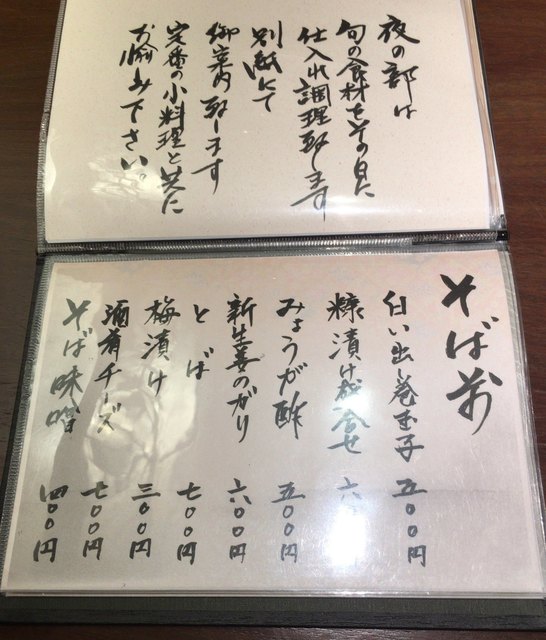 夜の部は
旬の食材をその日に
仕入れ調理致します
別紙にて
御案内致します
定番の小料理と共に
お愉み下さい。
そば前
白い出し巻玉子 五〇〇円
糠漬け盛合せ 六
みょうが酢 五〇〇円
新生姜のがり 六〇〇円
とば 七〇〇円
梅漬け 三〇〇円
酒肴チーズ 七〇〇円
そば味噌 四〇〇円